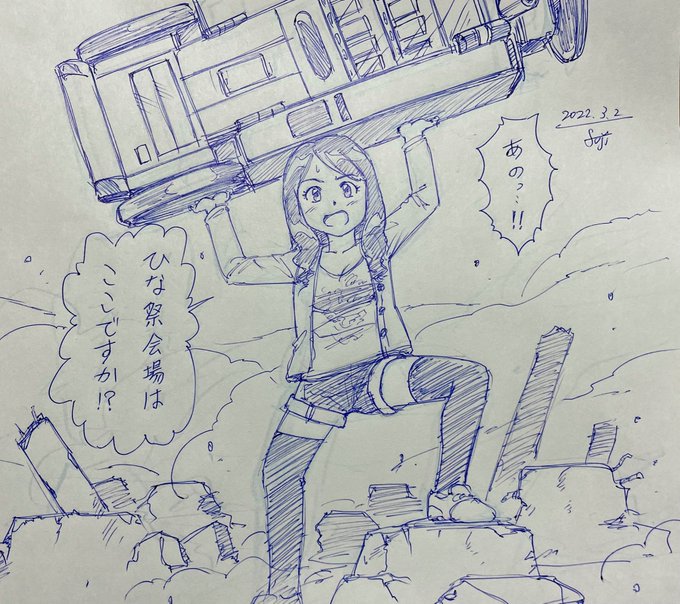 あのっ…!!
ひな祭会場は
ここですか!?
2022.3.2